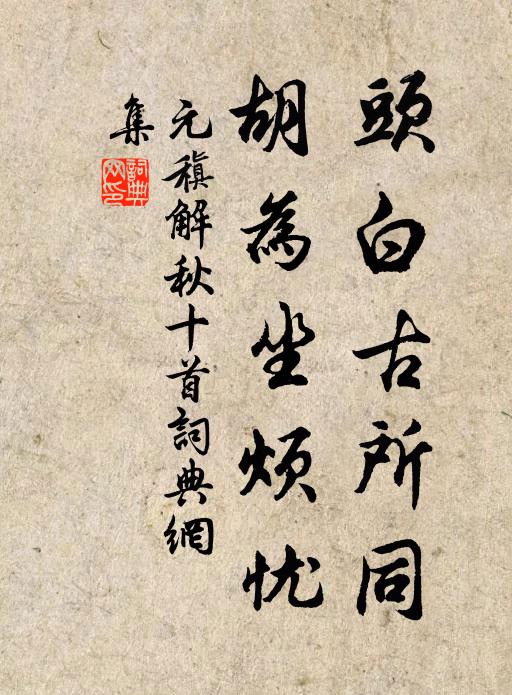 頭白古所同
胡為坐煩忧
元稹解秋十首詞典網
集
詞典網印